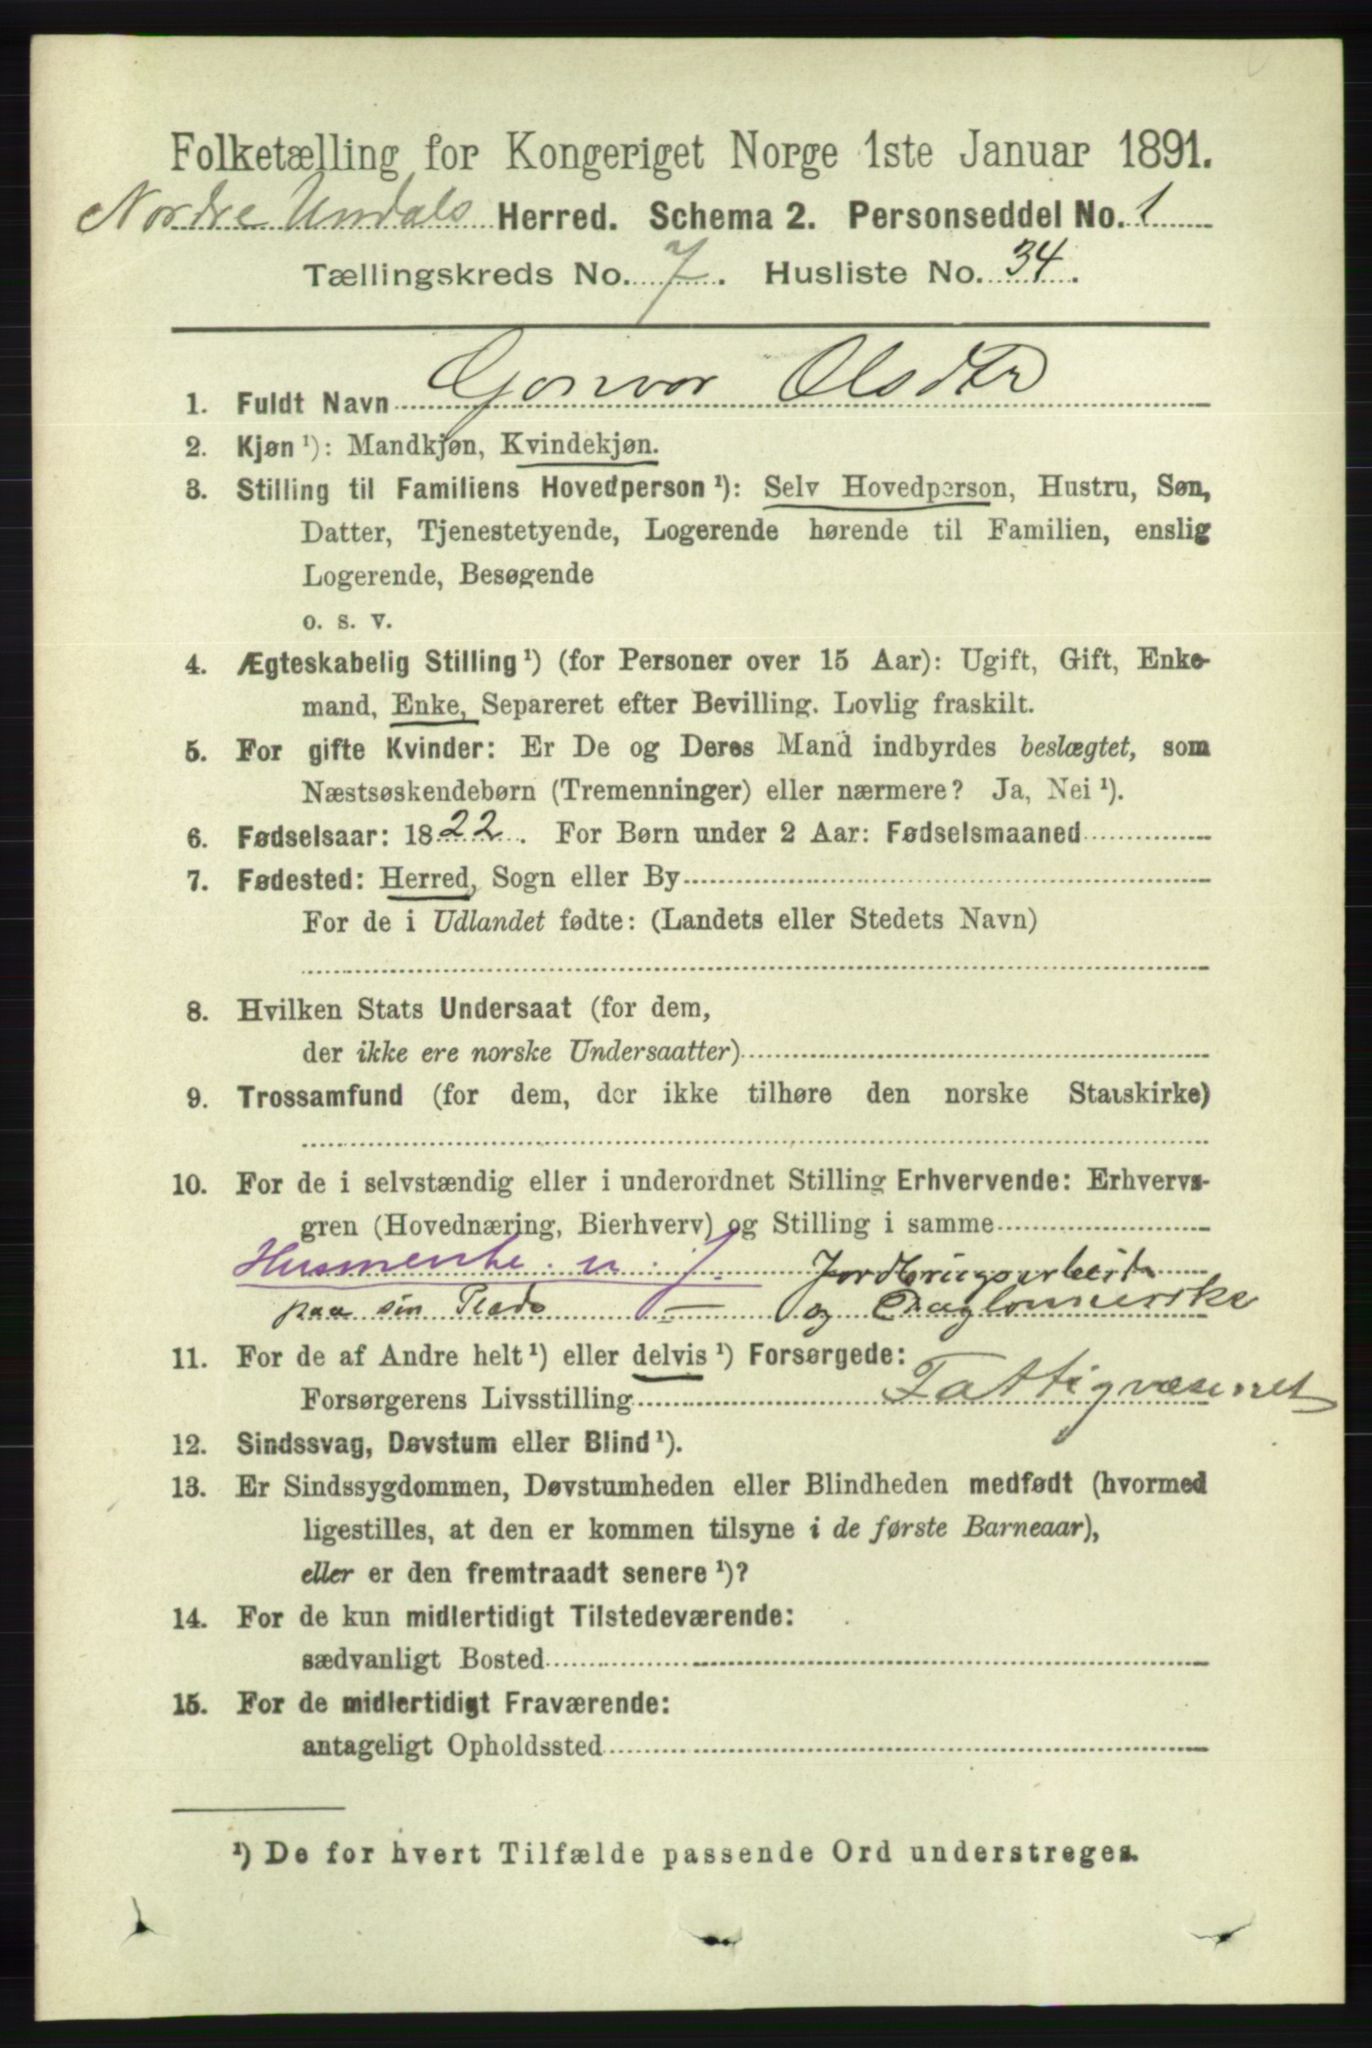 Folketælling for Kongeriget Norge 1ste Januar 1891.
Nordre Undals Herred. Schema 2. Personseddel No. 1
Tællingskreds No. 7. Husliste No. 34.
1. Fuldt Navn Gonvor Olsdtr
2. Kjøn¹): Mandkjøn, Kvindekjøn.
3. Stilling til Familiens Hovedperson¹): Selv Hovedperson, Hustru, Søn,
Datter, Tjenestetyende, Logerende hørende til Familien, enslig
Logerende, Besøgende
o. s. v.
4. Ægteskabelig Stilling¹) (for Personer over 15 Aar): Ugift, Gift, Enke-
mand, Enke, Separeret efter Bevilling. Lovlig fraskilt.
5. For gifte Kvinder: Er De og Deres Mand indbyrdes beslægtet, som
Næstsøskendebørn (Tremenninger) eller nærmere? Ja, Nei¹).
6. Fødselsaar: 1822. For Børn under 2 Aar: Fødselsmaaned
7. Fødested: Herred, Sogn eller By
For de i Udlandet fødte: (Landets eller Stedets Navn)
8. Hvilken Stats Undersaat (for dem,
der ikke ere norske Undersaatter)
9. Trossamfund (for dem, der ikke tilhøre den norske Statskirke)
10. For de i selvstændig eller i underordnet Stilling Erhvervende: Erhvervs-
gren (Hovednæring, Bierhverv) og Stilling i samme
Husmenke u. j. Jordbrugsarbeide
paa sin Plads — og Daglønnerske
11. For de af Andre helt¹) eller delvis¹) Forsørgede:
Forsørgerens Livsstilling Fattigvæsenet
12. Sindssvag, Døvstum eller Blind¹).
13. Er Sindssygdommen, Døvstumheden eller Blindheden medfødt (hvormed
ligestilles, at den er kommen tilsyne i de første Barneaar),
eller er den fremtraadt senere¹)?
14. For de kun midlertidigt Tilstedeværende:
sædvanligt Bosted
15. For de midlertidigt Fraværende:
antageligt Opholdssted
¹) De for hvert Tilfælde passende Ord understreges.